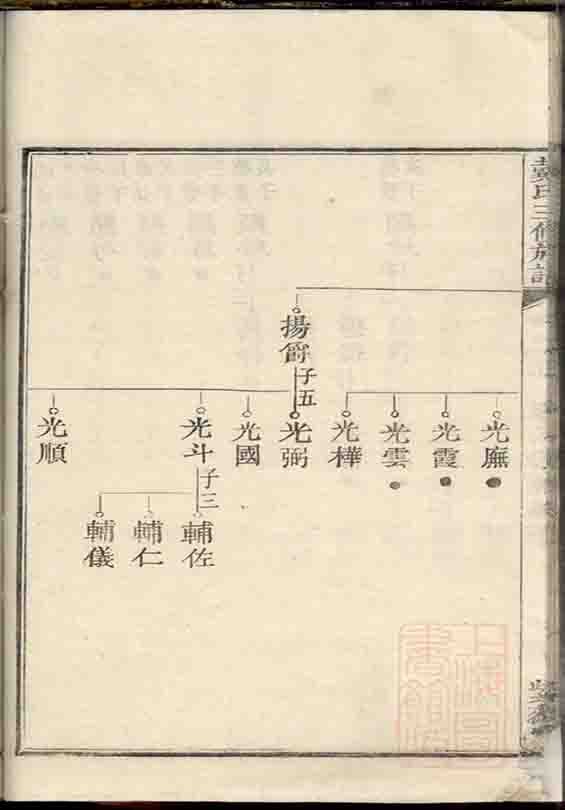 戴氏三修族譜
揚爵
子五
光廡
光霞
光雲
光樺
光弼
光國
光斗
子三
光順
輔佐
輔仁
輔儀
上海圖書館藏